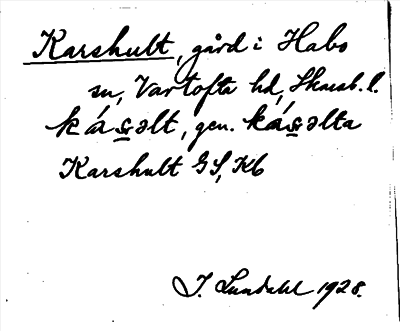 Karshult, gård i Habo
sn, Vartofta hd, Skarab. l.
káꞩəlt, gen. káꞩəlta
Karshult GS, Kb
I. Lundahl 1928.